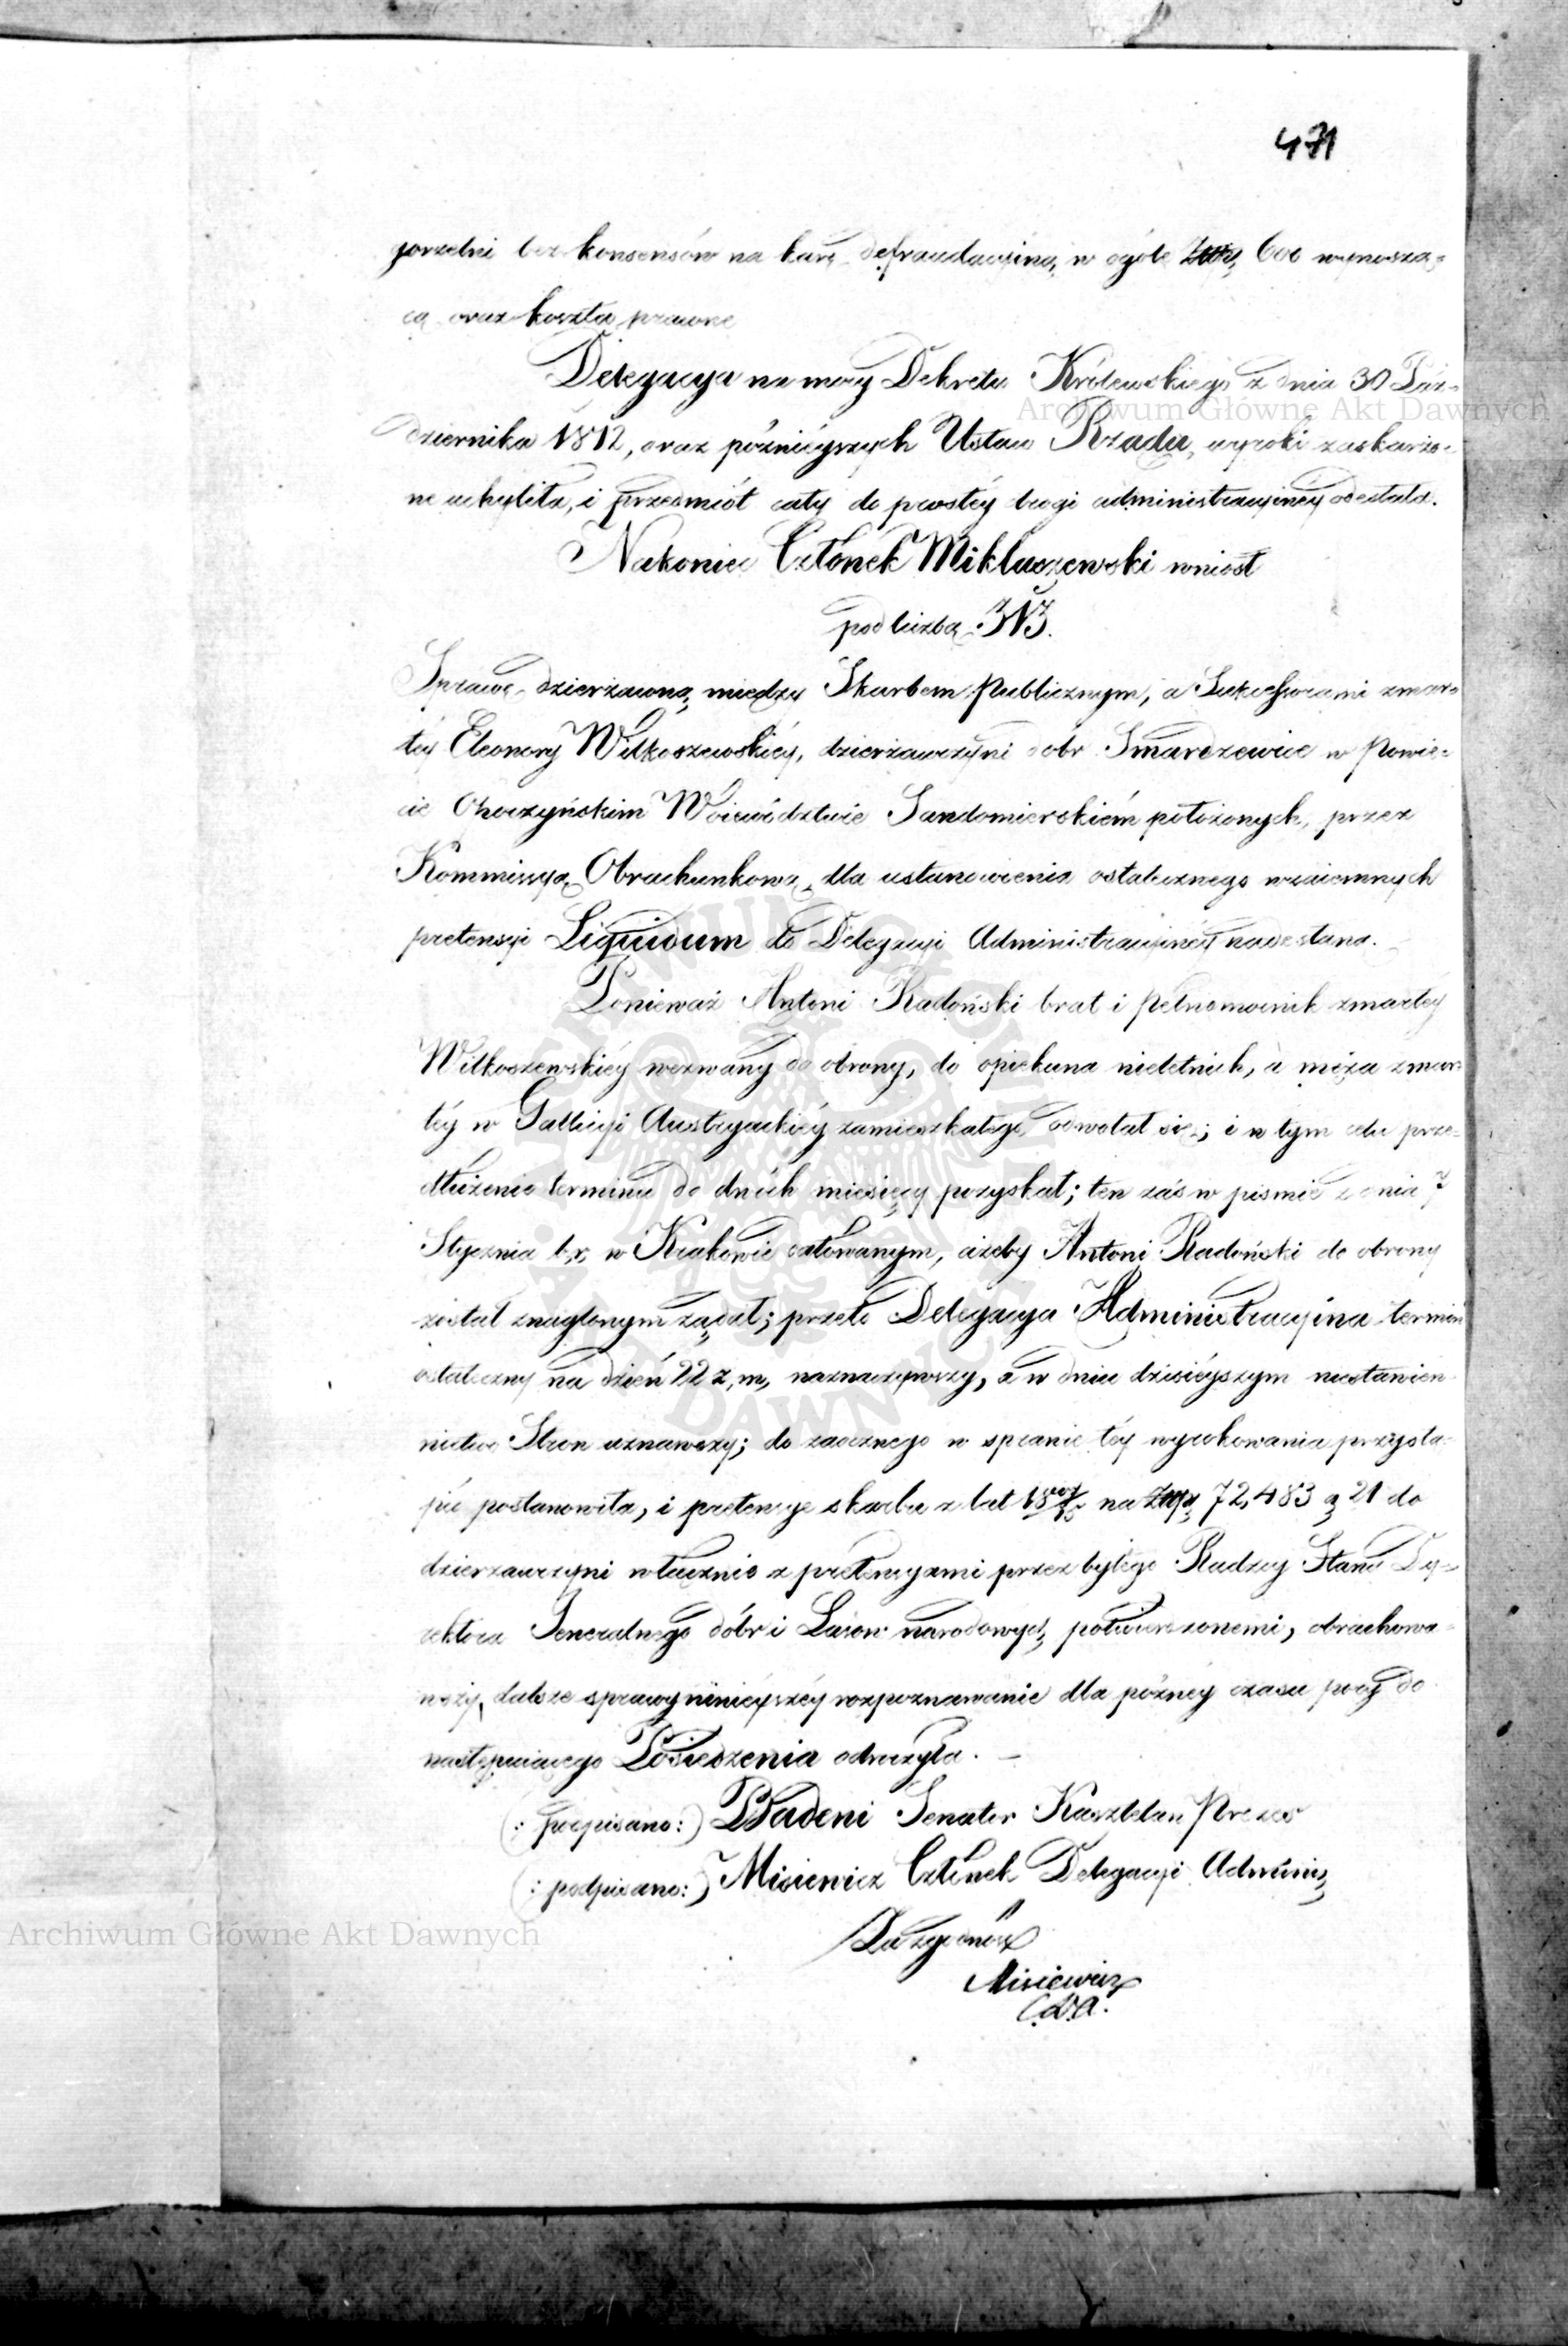 471
gorzelni bez konsensów na karę defraudacyiną, w ogóle Złłp, 600 wynoszą=
cą oraz koszta prawne
Delegacya na mocy Dekretu Królewskiego z dnia 30 Paź=
dziernika 1812, oraz późnieyszych Ustaw Rządu, wyroki zaskarżo=
ne uchyliła, i przedmiót cały do prostéy drogi administracyinéy odesłała.
Nakoniec Członek Mikluszewski wniósł
pod liczbą 313.
Sprawę dzierżawną między Skarbem Publicznym, a Sukcessorami zmar=
łéy Eleonory Wilkoszewskiéy, dzierżawczyni dóbr Smardzewice w Powie=
cie Opoczyńskim Woiewództwie Sandomierskiém położonych, przez
Kommissyą Obrachunkową dla ustanowienia ostatecznego wzaiemnych
pretensyi Liquidum do Delegacyi Administracyinéy nadesłaną.
Ponieważ Antoni Radoński brat i Pełnomocnik zmarłéy
Wilkoszewskiéy wezwany do obrony, do opiekuna nieletnich, a męża zmar=
łéy w Gallicyi Austryackiéy zamieszkałego, odwołał się; i w tym celu prze=
dłużenie terminu do dwóch miesięcy pozyskał; ten zaś w piśmie z dnia 7
Stycznia b, r, w Krakowie datowanym, ażeby Antoni Radoński do obrony
został znaglonym żądał; przeto Delegacya Administracyina termin
ostateczny na dzień 22 z, m, naznaczywszy, a w dniu dzisiéyszym niestawien=
nictwo Stron uznawszy; do zaocznego w sprawie téy wyrokowania przystą=
pić postanowiła, i pretensye skarbu z lat na Złłp, 72,483 g 21 do
dzierżawczyni włącznie z pretensyami przez byłego Radzcy Stanu Dy=
rektora Jeneralnego dóbr i Lasów narodowych, potwierdzonemi, obrachowa=
wszy, dalsze sprawy niniéyszéy rozpoznawanie dla późnéy czasu pory do
następuiącego Posiedzenia odroczyła. —
(: podpisano:) Badeni Senator Kasztelan Prezes
(: podpisano:) Misiewicz Członek Delegacyi Adminis,
Za zgodność
Misiewicz
C.D.A.
Archiwum Główne Akt Dawnych
Archiwum Główne Akt Dawnych